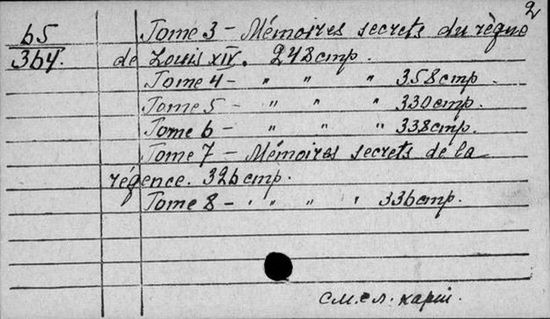 2
65
364.
Tome 3 – Mémoires secrets du règne
de Louis XIV. 248 cmp.
Tome 4 – " " " 358 cmp.
Tome 5 – " " " 330 cmp.
Tome 6 – " " " 338 cmp.
Tome 7 – Mémoires secrets de la
régence. 326 cmp.
Tome 8 – " " " " 336 cmp.
см. сл. карт.